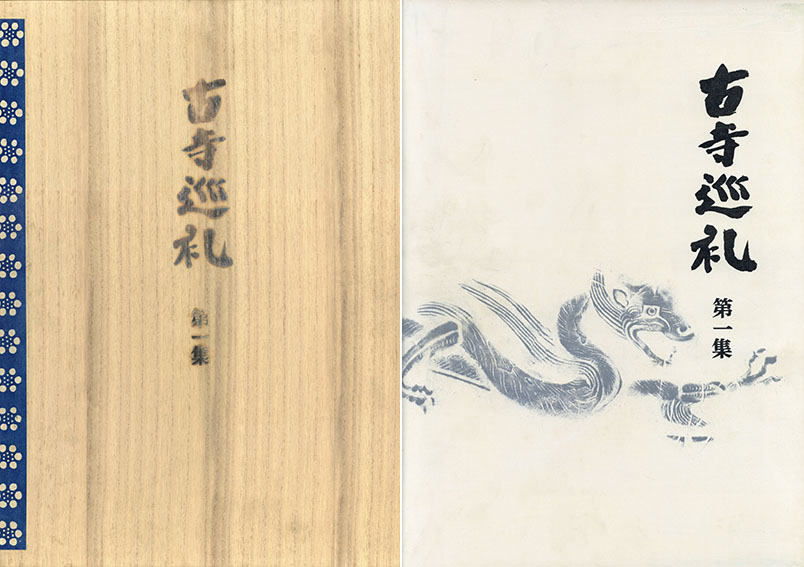 古寺巡礼
第一集
古寺巡礼
第一集